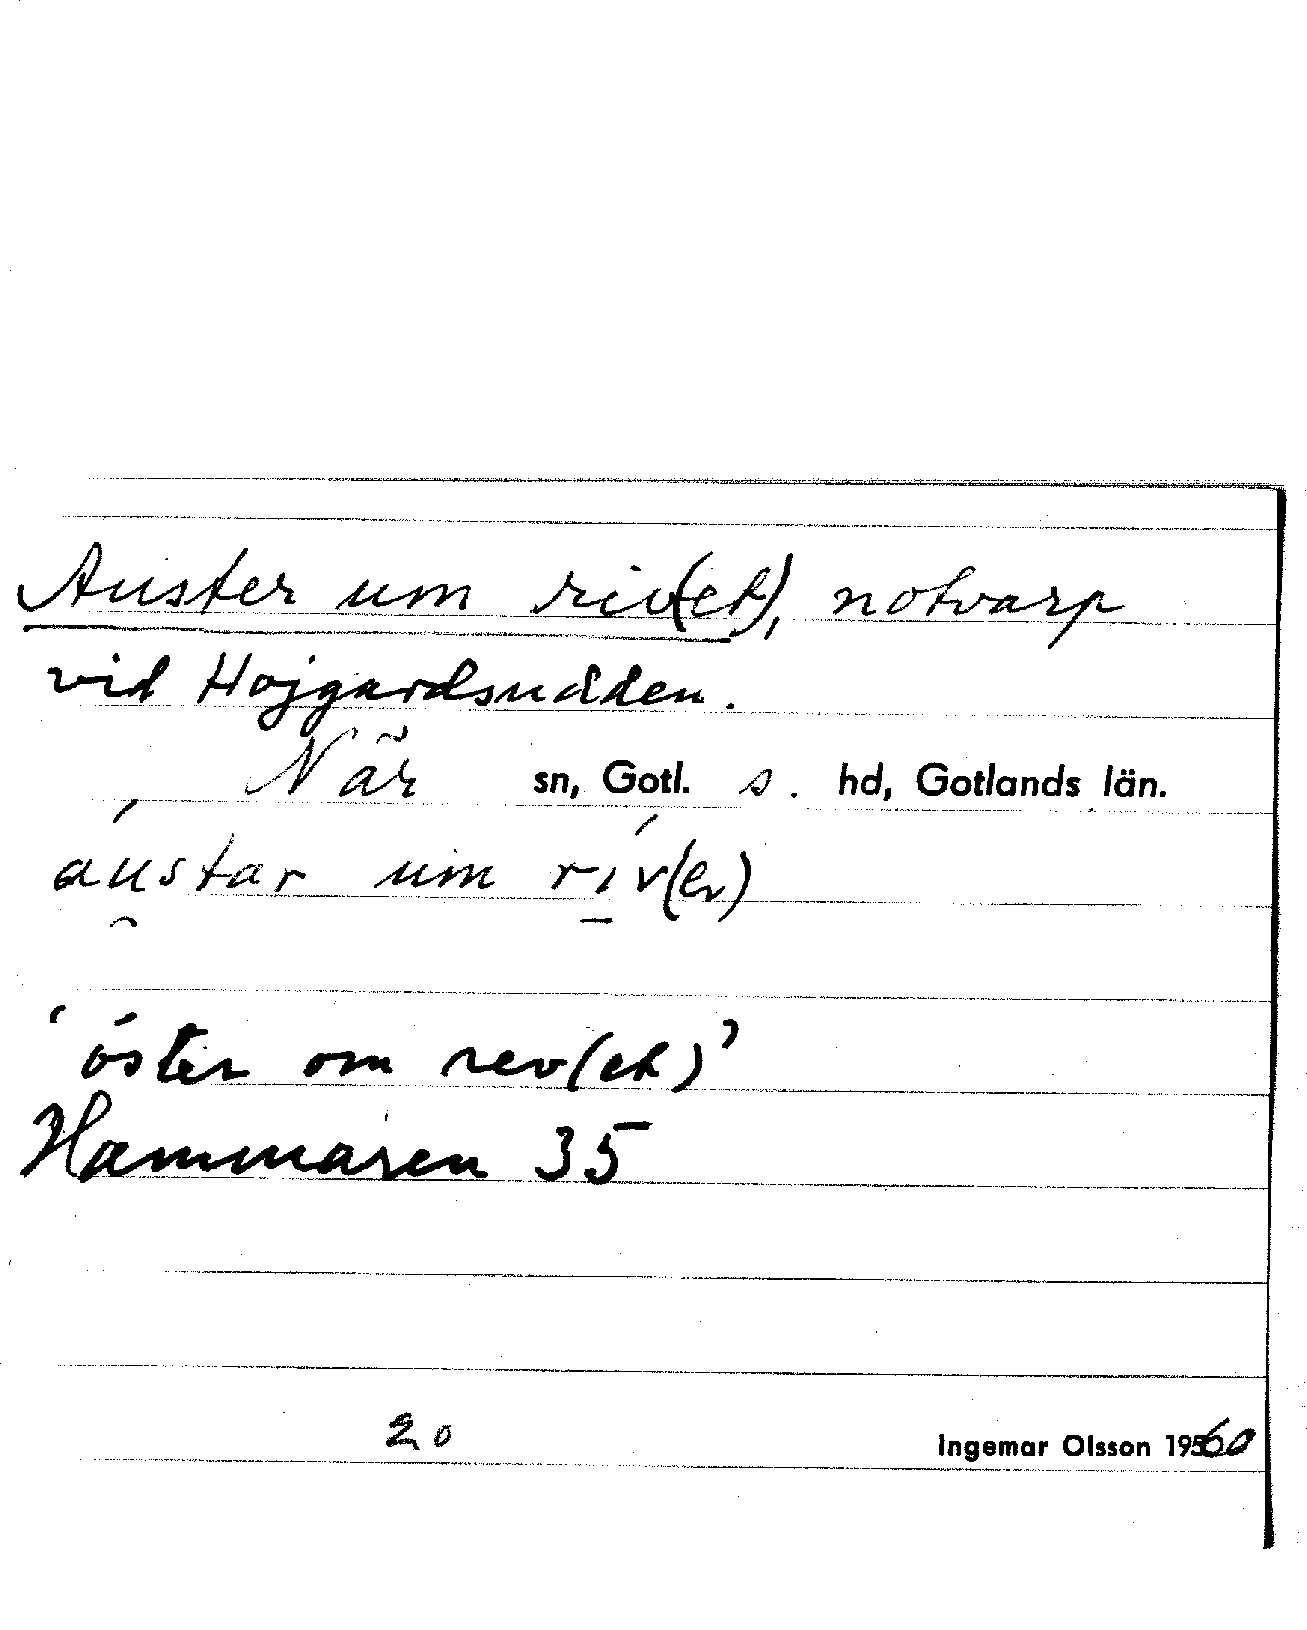 Auster um riv(et), notvarp
vid Hojgardsudden.
När sn, Gotl. s. hd, Gotlands län.
áu̯star um rí̱v(er)
'öster om rev(et)'
Hammaren 35
20 Ingemar Olsson 1960